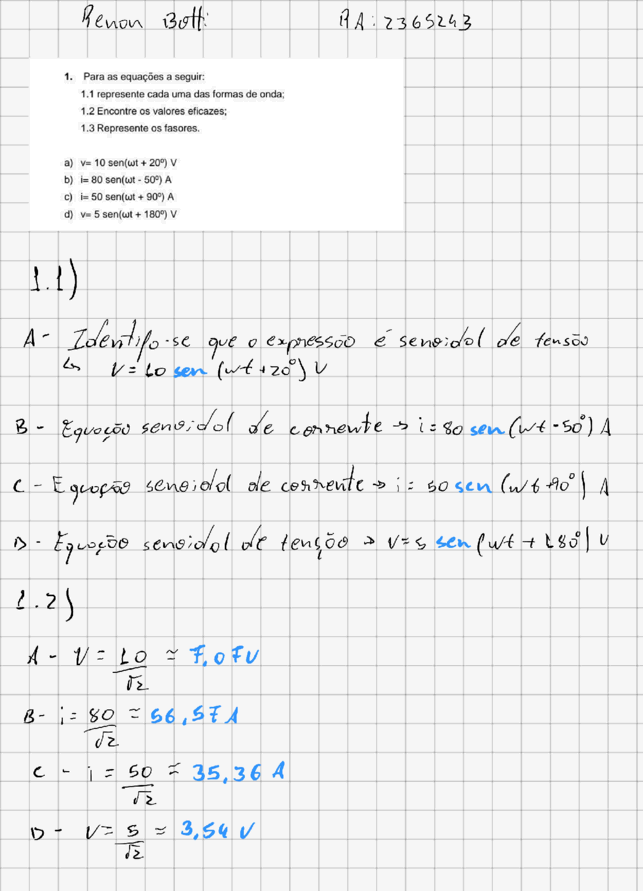 Renan Botti RA: 2365243
1. Para as equações a seguir:
1.1 represente cada uma das formas de onda;
1.2 Encontre os valores eficazes;
1.3 Represente os fasores.
a) v= 10 sen(ωt + 20º) V
b) i= 80 sen(ωt - 50º) A
c) i= 50 sen(ωt + 90º) A
d) v= 5 sen(ωt + 180º) V
1.1)
A - Identifo-se que o expressão é senoidal de tensão
↳ V = 10 sen (wt + 20°) V
B - Equação senoidal de corrente → i = 80 sen (wt - 50°) A
C - Equação senoidal de corrente → i = 50 sen (wt +90°) A
D - Equação senoidal de tenção → V = 5 sen (wt + 180°) V
1.2)
A - V = 10/√2 ≃ 7,07V
B - i = 80/√2 ≃ 56,57A
C - i = 50/√2 ≃ 35,36 A
D - V = 5/√2 ≃ 3,54 V